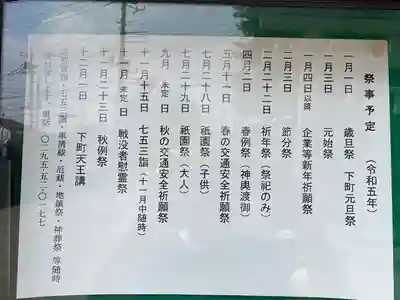 祭事予定 (令和五年)
一月一日 歳旦祭 下町元旦祭
一月三日 元始祭
一月四日以降 企業等新年祈願祭
二月三日 節分祭
二月二十二日 祈年祭(祭祀のみ)
四月二日 春例祭(神輿渡御)
五月十一日 春の交通安全祈願祭
七月二十八日 祇園祭(子供)
七月二十九日 祇園祭(大人)
九月 未定 日 秋の交通安全祈願祭
十一月十五日 七五三詣(十一月中随時)
十一月 未定 日 戦没者慰霊祭
十一月二十三日 秋例祭
十二月一日 下町天王講
七五三詣・車清祓・厄祓・地鎮祭・神葬祭 等随時
電話 〇二九五-五二-〇一七七